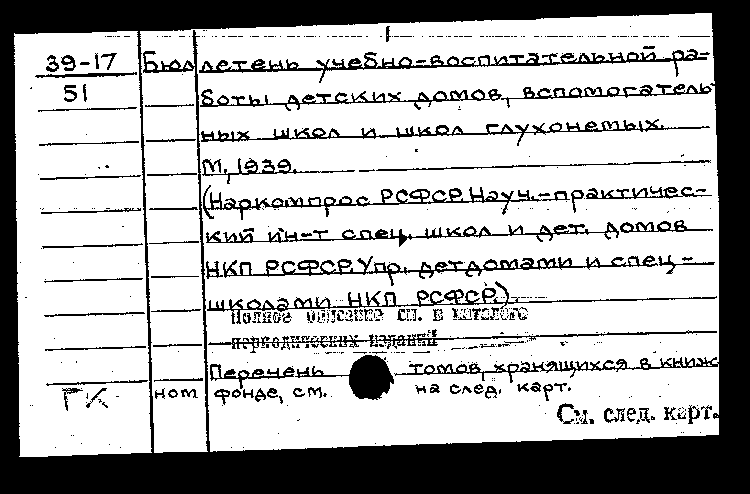 39-17 Бюллетень учебно-воспитательной ра-
51 боты детских домов, вспомогатель-
ных школ и школ глухонемых.
М., 1939.
(Наркомпрос РСФСР. Науч.-практичес-
кий ин-т спец. школ и дет. домов
НКП РСФСР. Упр. детдомами и спец-
школами НКП РСФСР.)
Полное описание см. в каталоге
периодических изданий
Перечень томов, хранящихся в книж
ГК нот фонде, см. на след. карт.
См. след. карт.